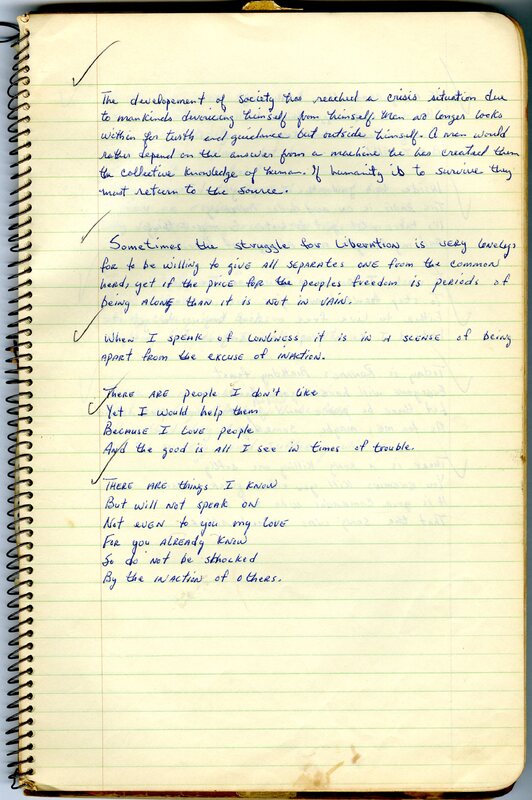 The developement of society has reached a crisis situation due
to mankinds divorcing himself from himself. Man no longer looks
within for truth and guidance but outside himself. A man would
rather depend on the answer from a machine he has created them
the collective knowledge of human. If humanity is to survive they
must return to the source.
Sometimes the struggle for Liberation is very lonely
for to be willing to give all separates one from the common
head, yet if the price for the peoples freedom is periods of
being alone than it is not in vain.
When I speak of lonliness it is in a scense of being
apart from the excuse of inaction.
There are people I don't like
Yet I would help them
Because I love people
And the good is all I see in times of trouble.
There are things I know
But will not speak on
Not even to you my love
For you already know
So do not be shocked
By the inaction of others.